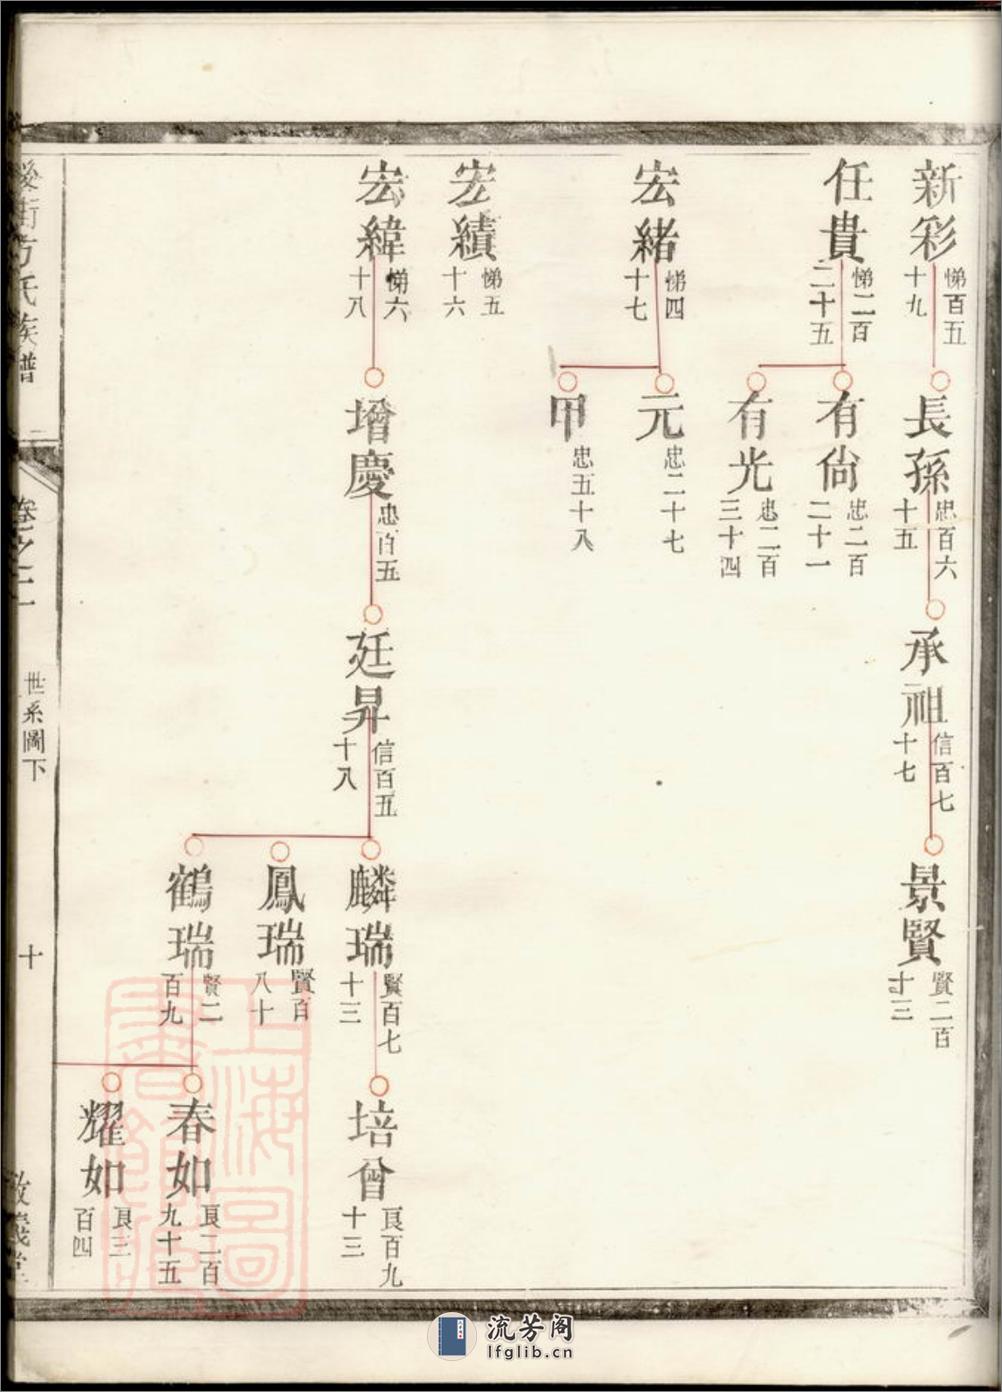 新彩
悌百五
十九
任貴
悌二百
二十五
宏緒
悌四
十七
宏績
悌五
十六
宏緯
悌六
十八
長孫
忠百六
十五
有尙
忠二百
二十一
有光
忠二百
三十四
元
忠二十七
甲
忠五十八
增慶
忠百五
承祖
信百七
十七
廷昇
信百五
十八
景賢
賢二百
十三
麟瑞
賢百七
十三
鳳瑞
賢百
八十
鶴瑞
賢二
百九
培曾
良百九
十三
春如
良二百
九十五
耀如
良三
百四
方氏族譜
卷之二
世系圖下
十
上海圖
書館藏
流芳阁
lfglib.cn